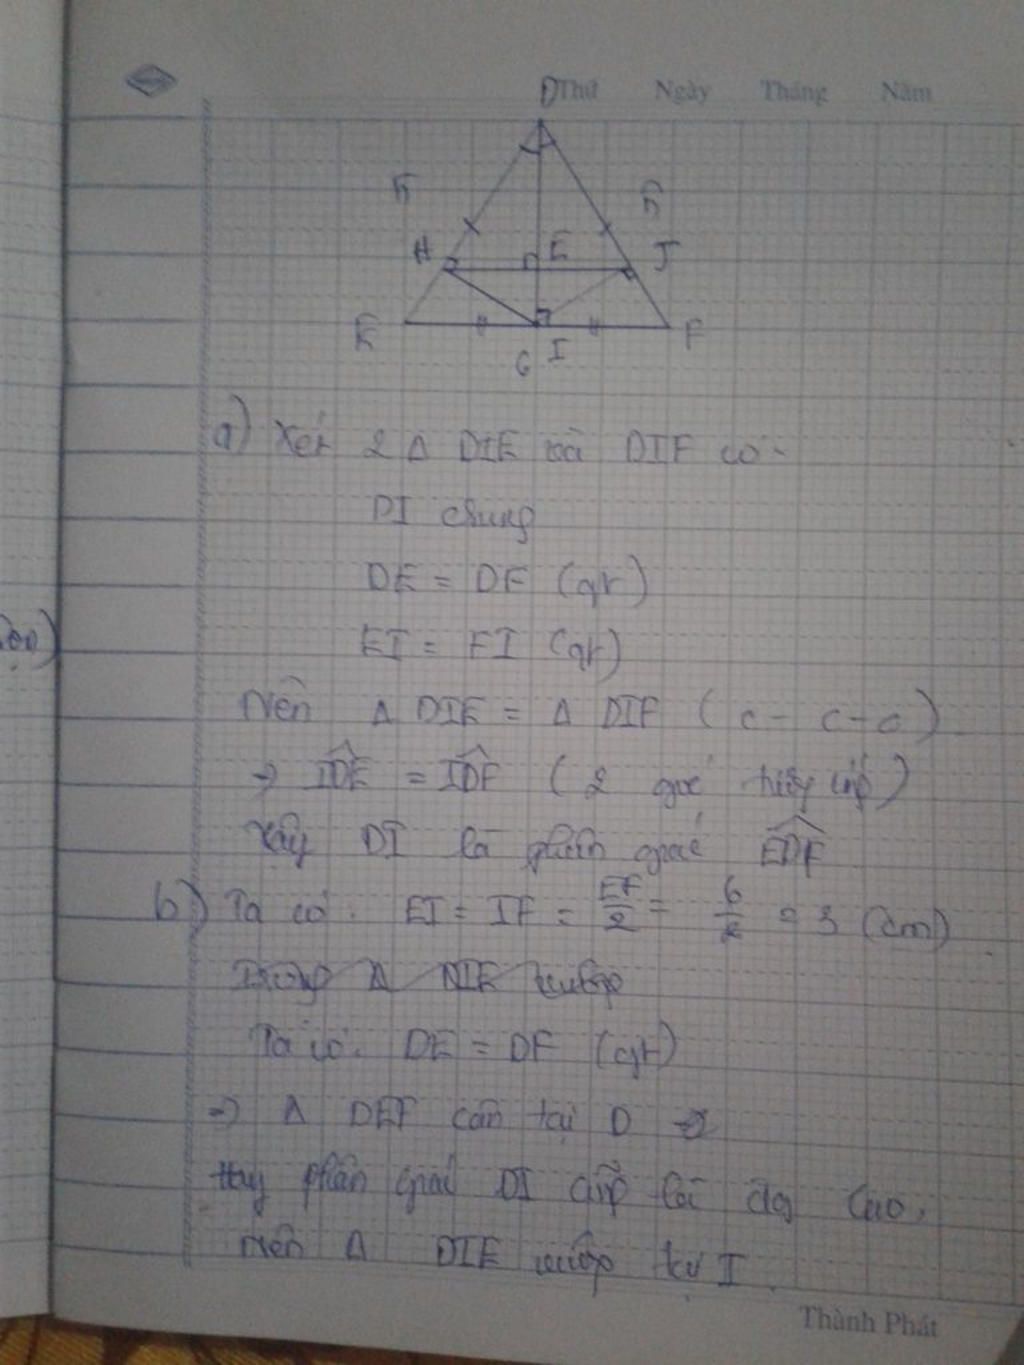 Thứ Ngày Tháng Năm
D
5 5
H E J
E F
6 I
a) Xét 2 Δ DIE và DIF có.
DI chung
DE = DF (gt)
EI = FI (gt)
Nên Δ DIE = Δ DIF (c - c - c)
⇒ IDE = IDF (2 góc )
Vậy DI là phân giác EDF
b) Ta có: EI = IF = EF/2 = 6/2 = 3 (cm)
Trong Δ DIE vuông
Ta có: DE = DF (gt)
⇒ Δ DEF cân tại D ⇒
Hay phân giác DI cũng là đg cao.
Nên Δ DIE vuông tại I
Thành Phát